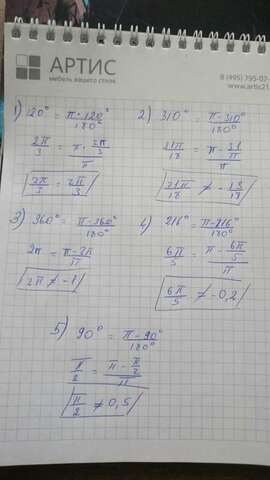 АРТИС
мебель вашего стиля
8 (495) 795-02-
www.artis21
1) 120° = π · 120° / 180°
2π/3 = π · 2π/3 / π
2π/3 = 2π/3
2) 310° = π - 310° / 180°
31π/18 = π - 31/π / π
31π/18 ≠ - 13/18
3) 360° = π - 360° / 180°
2π = π - 2π / π
2π ≠ -1
4) 216° = π - 216° / 180°
6π/5 = π - 6π/5 / π
6π/5 ≠ -0,2
5) 90° = π - 90° / 180°
π/2 = π - π/2 / π
π/2 ≠ 0,5